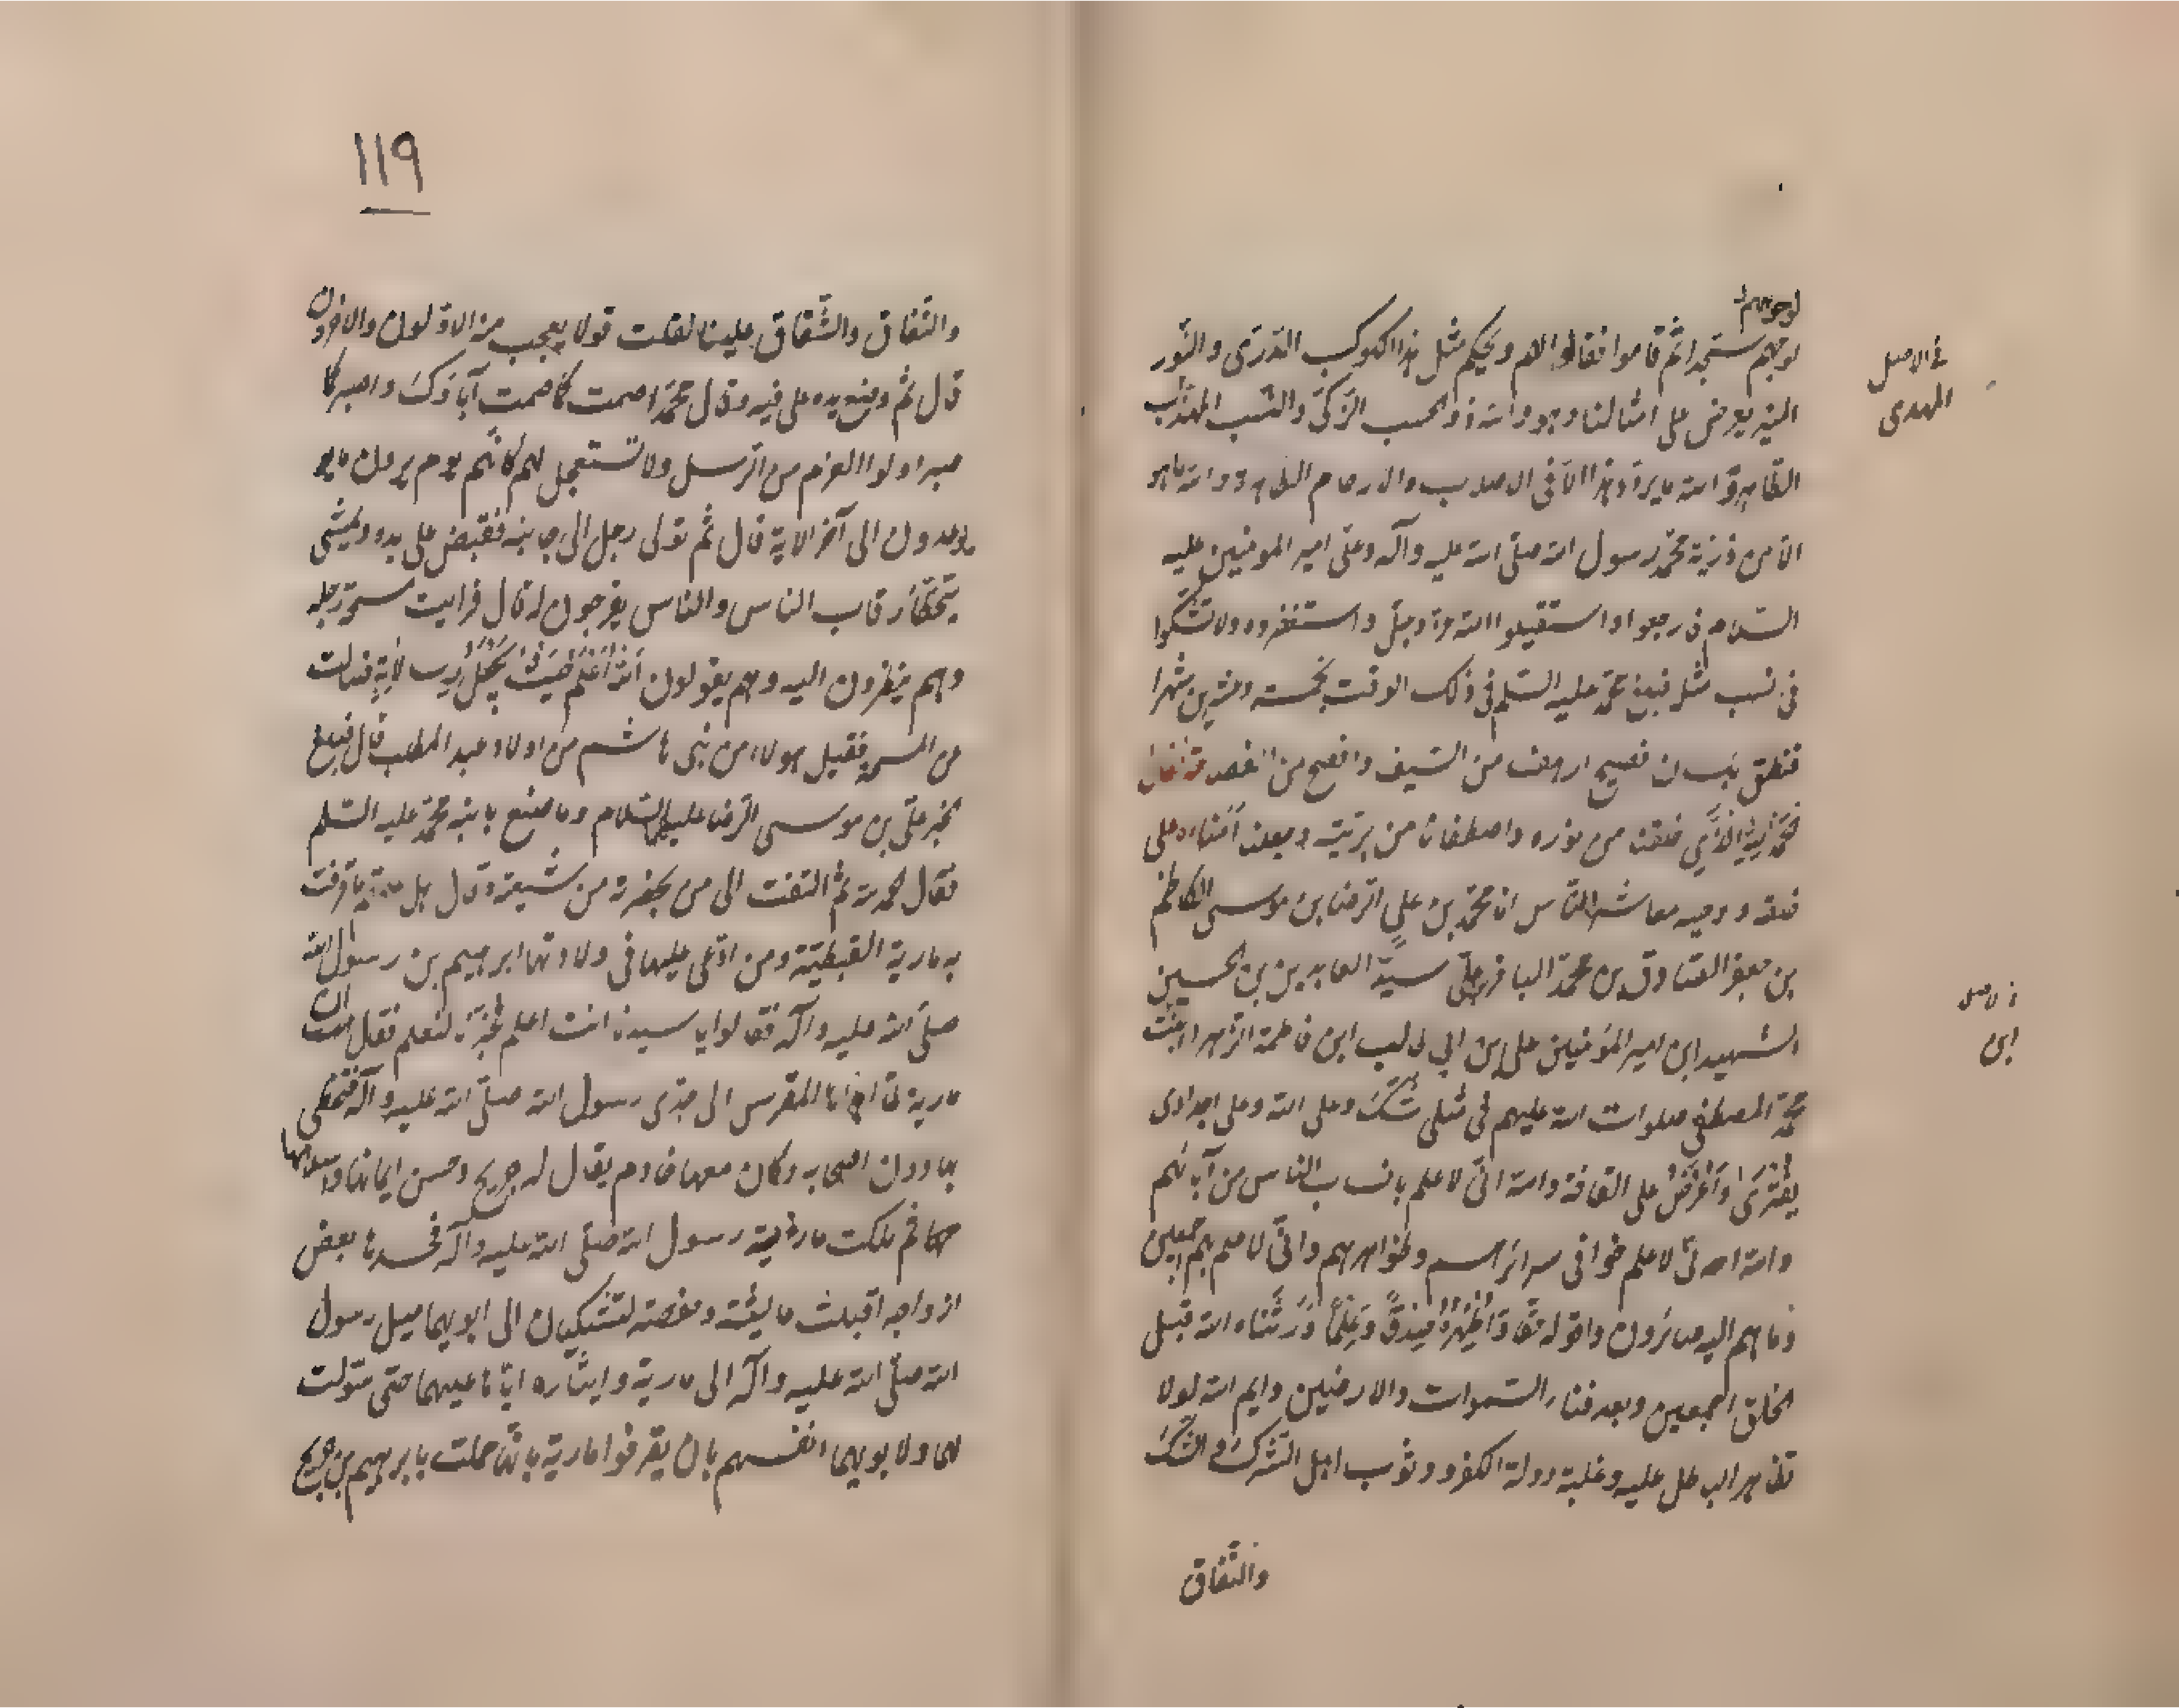 لوجوههم
لوجههم سجدا ثم قاموا فقالوا لهم ويحكم مثل هذا الكوكب الدري والنور
المنير يعرض على امثالنا وهو والله ذو الحسب الزكي والنسب المهذب
الطاهر والله ما يردد هذا الا في الاصلاب والارحام الطاهرة والله ما هو
الا من ذرية محمد رسول الله صلى الله عليه وآله وعلى امير المومنين عليه
السلام فارجعوا واستقيلوا الله عز وجل واستغفروه ولا تشكوا
في نسب مثله فبلغ محمد عليه السلم في ذلك الوقت بخمسة وعشرين شهرا
فنطق بلسان فصيح ارهف من السيف وافصح من الفصاحة فقال
خلقنا من نوره واصطفانا من بريته وجعلنا امناءه على
خلقه ووحيه معاشر الناس انا محمد بن علي الرضا بن موسى الكاظم
بن جعفر الصادق بن محمد الباقر بن علي سيد العابدين بن الحسين
الشهيد ابن امير المؤمنين علي بن ابي طالب ابن فاطمة الزهرا بنت
محمد المصطفى صلوات الله عليهم في مثلي شك وعلى الله وعلى اجدادي
يفترى واعرض على القافة والله اني لاعلم بانساب الناس من آبائهم
والله اني لاعلم خوافي سرائرهم وظواهرهم واني لاعلم بهم اجمعين
وما هم اليه صائرون واقوله حقا واظهره صدقا وعلما ورثناه الله قبل
الخلق اجمعين وبعد فناء السموات والارضين وايم الله لولا
تظاهر الباطل عليه وغلبة دولة الكفر ووثوب اهل الشرك والشك
والنفاق
في الاصل
المهدى
في الاصل
ابن
١١٩
والنفاق والشقاق علينا لقلت قولا يعجب منه الاولون والاخرون
قال ثم وضع يده على فيه وقال محمد اصمت كما صمت آباؤك واصبر كما
صبر اولوا العزم من الرسل ولا تستعجل لهم كانهم يوم يرون ما يو
يوعدون الى آخر الاية قال ثم تولى رجل الى جانبه فقبض على يده ويمشى
يتخطا رقاب الناس والناس يفرجون له قال فرايت
وهم ينظرون اليه وهم يقولون الله اعلم حيث يجعل الاية فسالت
عن فقيل هولاء من بني هاشم من اولاد عبد المطلب قال فبلغ
خبر علي بن موسى الرضا عليه السلام وما صنع بابنه محمد عليه السلم
فقال الحمد لله ثم التفت الى من بحضرته من شيعته وقال هل علمتم ما قرفت
به مارية القبطية ومن ادعى عليها في ولادتها ابرهيم بن رسول الله
صلى الله عليه وآله فقالوا يا سيدنا انت اعلم لنعلم فقال ان
مارية لما اهداها المقوقس الى جدى رسول الله صلى الله عليه وآله فتحظى
بها دون اصحابه وكان معها خادم يقال له جريح وحسن ايمانها واسلامهما
ثم ملكت مارية رسول الله صلى الله عليه وآله فحسدها بعض
ازواجه اقبلت عايشة وحفصة لتشتكيان الى ابويهما ميل رسول
الله صلى الله عليه وآله الى مارية وايثاره اياها عليهما حتى سولت
لهما ولابويهما انفسهم بان يقرفوا مارية بانها حملت بابرهيم من جريح